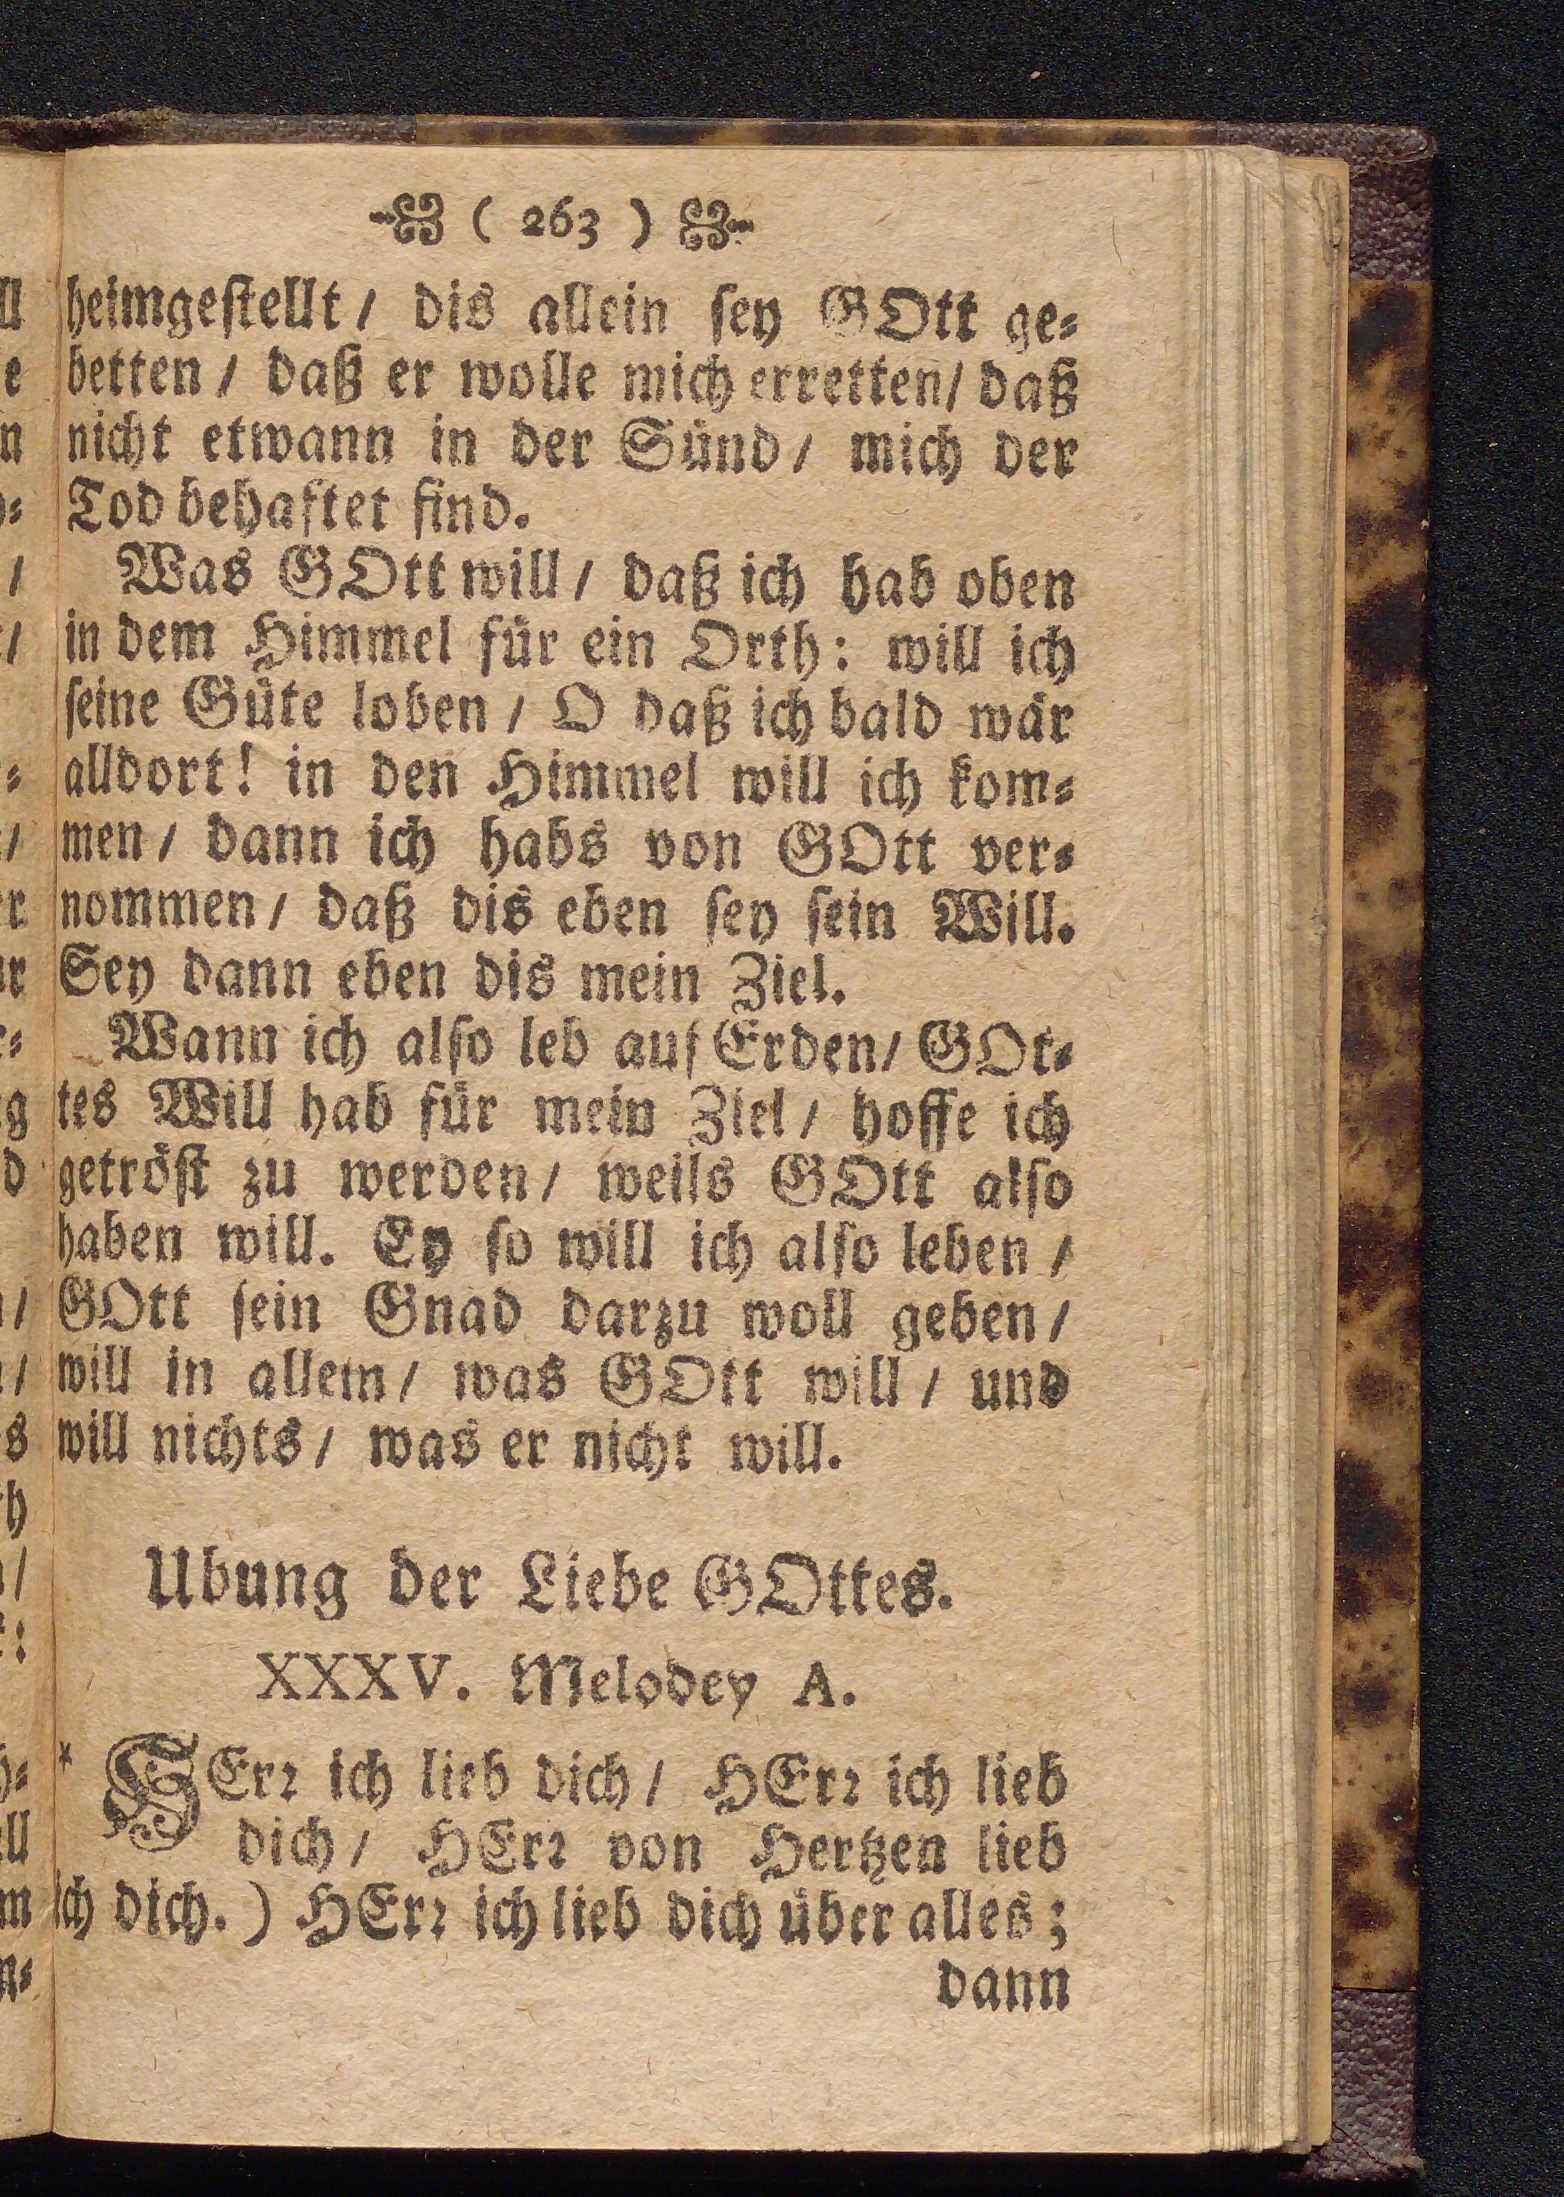 ( 263 )
heimgestellt / dis allein sey GOtt ge-
betten / daß er wolle mich erretten / daß
nicht etwann in der Sünd / mich der
Tod behaftet find.
Was GOtt will / daß ich hab oben
in dem Himmel für ein Orth: will ich
seine Güte loben / O daß ich bald wär
alldort! in den Himmel will ich kom-
men / dann ich habs von GOtt ver-
nommen / daß dis eben sey sein Will.
Sey dann eben dis mein Ziel.
Wann ich also leb auf Erden / GOt-
tes Will hab für mein Ziel / hoffe ich
getröst zu werden / weils GOtt also
haben will. Ey so will ich also leben /
GOtt sein Gnad darzu woll geben /
will in allem / was GOtt will / und
will nichts / was er nicht will.
Ubung der Liebe GOttes.
XXXV. Melodey A.
* HErr ich lieb dich / HErr ich lieb
dich / HErr von Hertzen lieb
ich dich. ) HErr ich lieb dich über alles;
dann